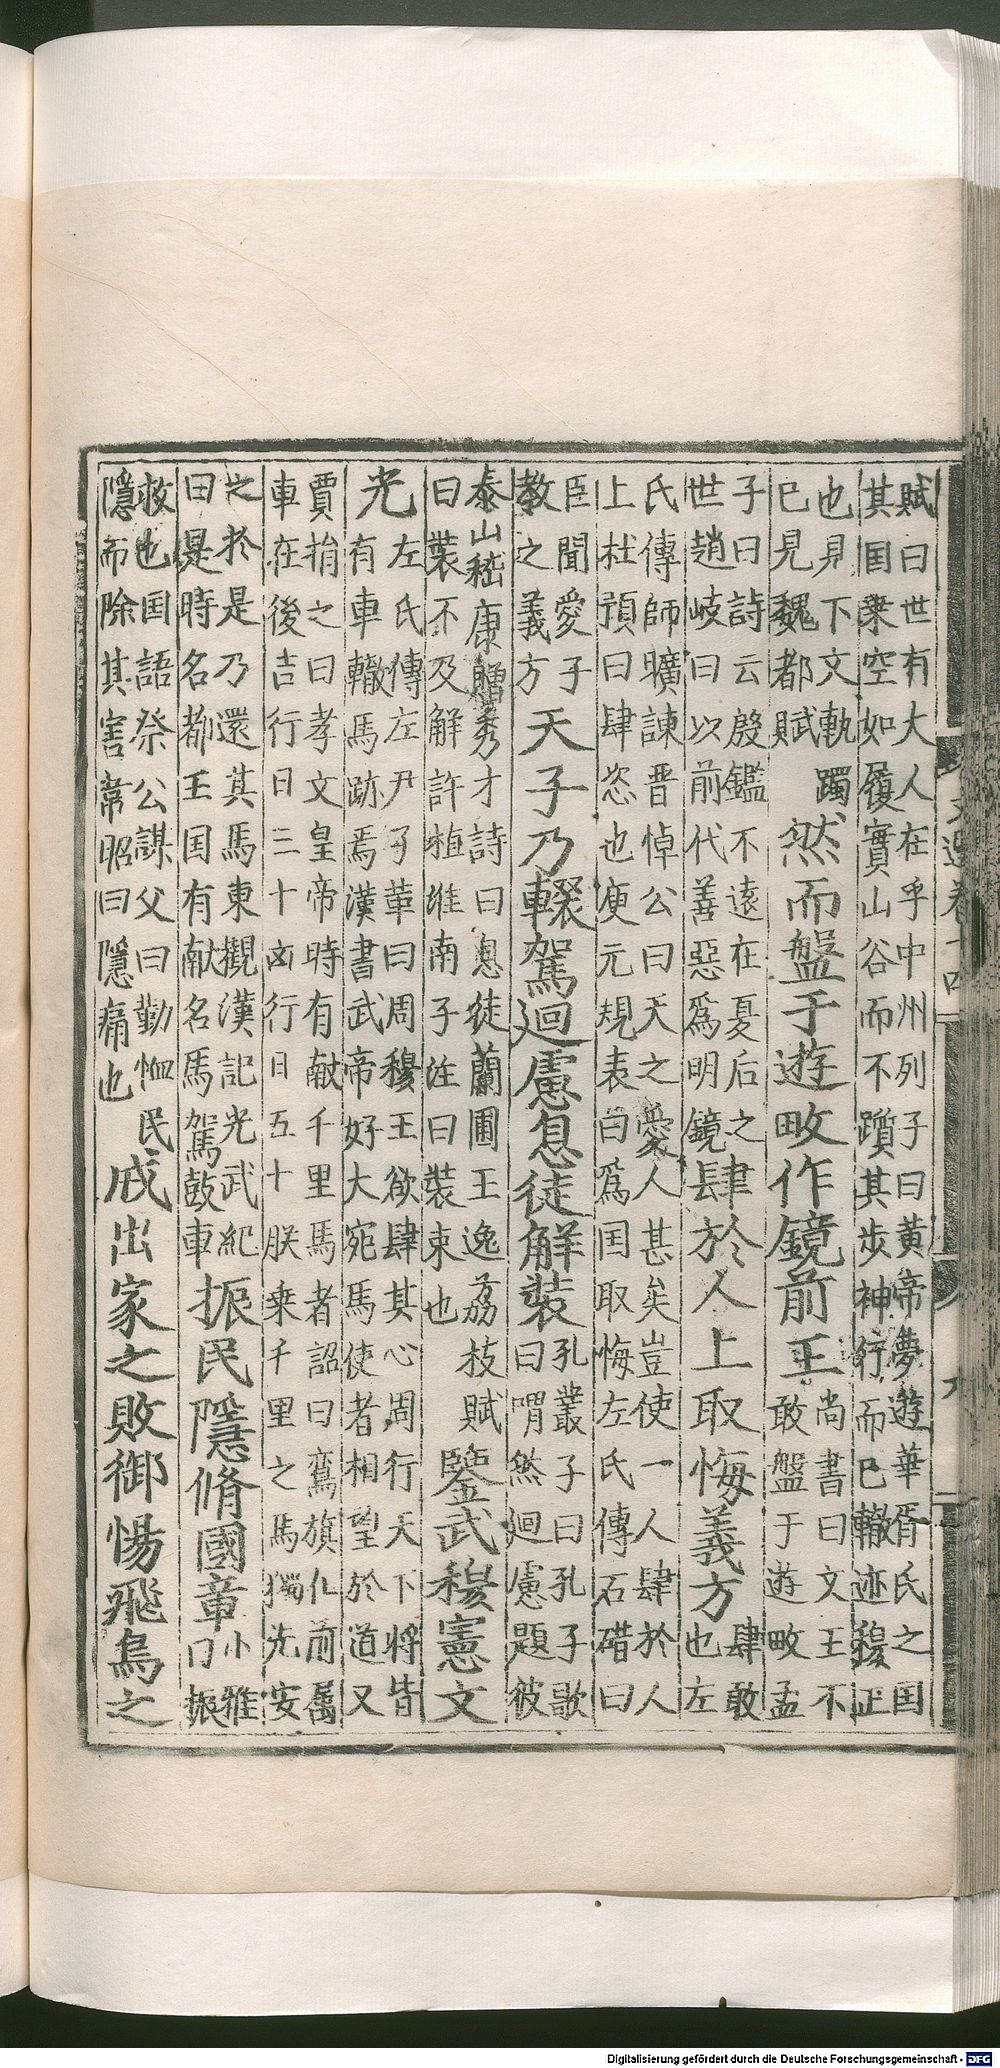 賦曰世有大人在乎中州列子曰黃帝夢遊華胥氏之国
其国乗空如履實山谷而不躓其步神行而已轍迹穆䟽
也見下文軌躅
已見魏都賦
然而盤于遊畋作鏡前王
尚書曰文王不
敢盤于遊畋孟
子曰詩云殷鑑不遠在夏后之
世趙岐曰以前代善惡爲明鏡
肆於人上取悔義方
肆敢
也左
氏傳師曠諫晋悼公曰天之愛人甚矣豈使一人肆於人
上杜預曰肆恣也庾元規表曰爲国取悔左氏傳石碏曰
臣聞愛子
教之義方
天子乃輟駕迴慮息徒解裝
孔叢子曰孔子歌
曰喟然迴慮題彼
泰山嵇康贈秀才詩曰息徒蘭圃王逸荔枝賦
曰裝不及解許植淮南子注曰裝束也
鑒武穆憲文
光
左氏傳左尹子革曰周穆王欲肆其心周行天下將皆
有車轍馬跡焉漢書武帝好大宛馬使者相望於道又
賈捐之曰孝文皇帝時有献千里馬者詔曰鸞旗在前属
車在後吉行日三十凶行日五十朕乗千里之馬獨先安
之於是乃還其馬東觀漢記光武紀
曰是時名都王国有献名馬駕鼓車
振民隱脩國章
小雅
曰振
救也国語祭公謀父曰勤恤民
隱而除其害韋昭曰隱痛也
戒出豕之敗御惕飛鳥之
文選卷十四
九
Digitalisierung gefördert durch die Deutsche Forschungsgemeinschaft - DFG